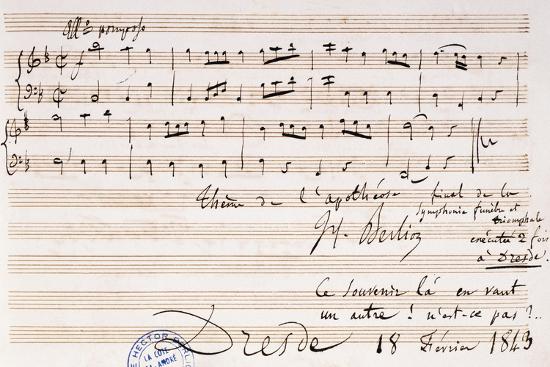 All° pomposo
Thème de l'apothéose final de la
symphonie funèbre et
triomphale
H. Berlioz
exécutée 2 fois
à Dresde.
Ce souvenir là en vaut
un autre ! n'est-ce pas ?..
Dresde 18 Février 1843
HECTOR BERLIOZ
LA CÔTE
ANDRÉ